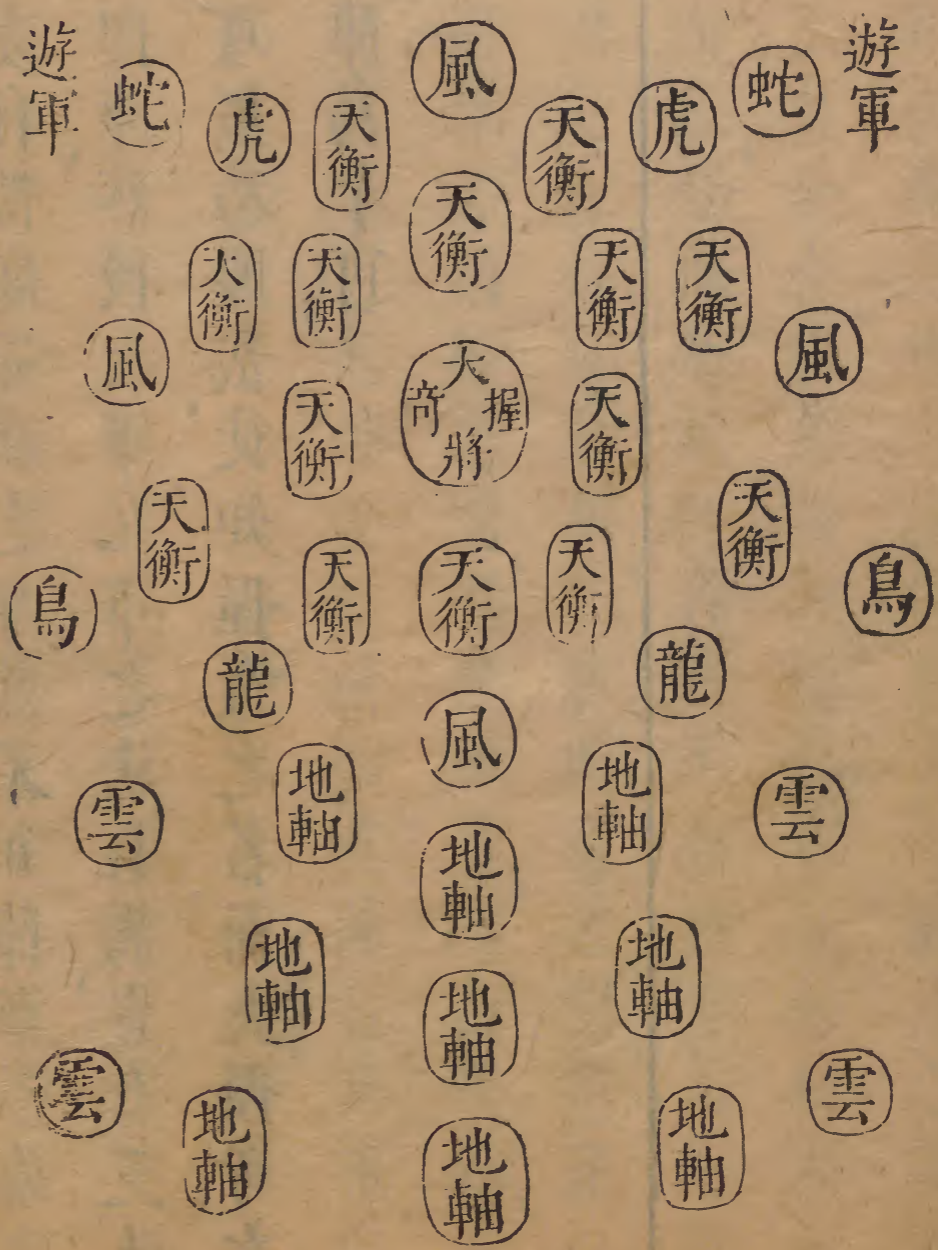 遊軍 蛇 虎 天衡 風 天衡 虎 蛇 遊軍
天衡
天衡 天衡 天衡 天衡
風 風
天衡 大將握奇 天衡
天衡 天衡
鳥 天衡 天衡 天衡 鳥
龍 龍
風
雲 地軸 地軸 雲
地軸
地軸 地軸
地軸
雲 雲
地軸 地軸
地軸